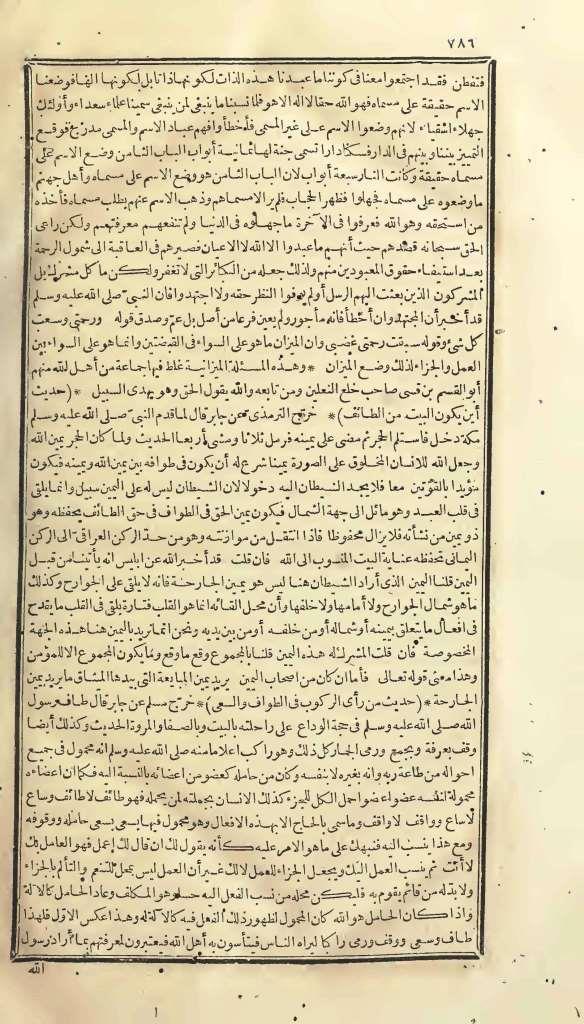 ٧٨٦
فتفطن فقد اجتمعوا معنا في كوننا ما عبدنا هذه الذات لكونها ذاتا بل لكونها الها فوضعنا
الاسم حقيقة على مسماه فهو الله حقا لا اله الا هو فلما نسبنا ما ينبغي لمن ينبغي سمينا علماء سعداء وأولئك
جهلاء أشقياء لانهم وضعوا الاسم على غير المسمى فأخطأوا فهم عباد الاسم والمسمى مدرج فوقع
التمييز بيننا وبينهم في الدار فسكنا دارا تسمى جنة لها ثمانية أبواب الباب الثامن وضع الاسم على
مسماه حقيقة وكانت النار سبعة أبواب لان الباب الثامن هو وضع الاسم على مسماه وأهل جهنم
ما وضعوه على مسماه فجهلوا فظهر الحجاب فلم يروا الا مسماهم وذهب الاسم عنهم يطلب مسماه فأخذه
من استحقه وهو الله فعرفوا في الآخرة ما جهلوه في الدنيا ولم تنفعهم معرفتهم ولكن راعى
الحق سبحانه قصدهم حيث أنهم ما عبدوا الا الله لا الاعيان فصيرهم في العاقبة الى شمول الرحمة
بعد استيفاء حقوق المعبودين منهم ولذلك جعله من الكبائر التي لا تغفر ولكن ما كل مشرك بل
المشركون الذين بعثت اليهم الرسل أو لم يوفوا النظر حقه ولا اجتهدوا فان النبي صلى الله عليه وسلم
قد أخبر أن المجتهد وان أخطأ فانه مأجور ولم يعين فرعا من أصل بل عم وصدق قوله ورحمتي وسعت
كل شئ وقوله سبقت رحمتي غضبي وان الميزان ما هو على السواء في القبضتين وانما هو على السواء بين
العمل والجزاء لذلك وضع الميزان * وهذه المسئلة الميزانية غلط فيها جماعة من أهل الله منهم
أبو القسم بن قسي صاحب خلع النعلين ومن تابعه والله يقول الحق وهو يهدى السبيل * (حديث
أين يكون البيت من الطائف) * خرّج الترمذى عن جابر قال لما قدم النبي صلى الله عليه وسلم
مكة دخل فاستلم الحجر ثم مضى على يمينه فرمل ثلاثا ومشى أربعا الحديث ولما كان الحجر يمين الله
وجعل الله للانسان المخلوق على الصورة يمينا شرع له أن يكون في طوافه بين يمين الله ويمينه فيكون
مؤيدا بالقوّتين معا فلا يجد الشيطان اليه دخولا لان الشيطان ليس له على اليمين سبيل وانما يلقى
في قلب العبد وهو مائل الى جهة الشمال فيكون يمين الحق في الطواف في حق الطائف يحفظه وهو
ذو يمين من نشأته فلا يزال محفوظا فاذا انتقل من موازنته وهو من حد الركن العراقي الى الركن
اليماني تحفظه عناية البيت المنسوب الى الله فان قلت قد أخبر الله عن ابليس انه يأتينا من قبل
اليمين قلنا اليمين الذى أراد الشيطان هنا ليس هو يمين الجارحة فانه لا يلقى على الجوارح وكذلك
ما هو شمال الجوارح ولا أمامها ولا خلفها وأن محل القائه انما هو القلب فتارة يلقى في القلب ما يقدح
في أفعال ما يتعلق بيمينه أو شماله أو من خلفه أو من بين يديه ونحن انما نريد باليمين هنا هذه الجهة
المخصوصة فان قلت المشرك له هذه اليمين قلنا بالمجموع وقع ما وقع وما يكون المجموع الا للمؤمن
وهذا معنى قوله تعالى فأما ان كان من أصحاب اليمين يريد يمين المبايعة التي بيدها الميثاق ما يريد يمين
الجارحة * (حديث من رأى الركوب في الطواف والسعى) * خرّج مسلم عن جابر قال طاف رسول
الله صلى الله عليه وسلم في حجة الوداع على راحلته بالبيت وبالصفا والمروة الحديث وكذلك أيضا
وقف بعرفة وبجمع ورمى الجمار كل ذلك وهو راكب اعلاما منه صلى الله عليه وسلم انه محمول في جميع
احواله من طاعة ربه وانه بغيره لا بنفسه وكان من حامله كعضو من اعضائه بالنسبة اليه فكما ان اعضاءه
محمولة لنفسه عضوا عضوا حمل الكل للجزء كذلك الانسان بجملته لمن يحمله فهو طائف لا طائف وساع
لا ساع وواقف لا واقف وما سمى بالحاج الا بهذه الافعال وهو محمول فيها بسعى يسعى حامله ووقوفه
ومع هذا ينسب اليه فنبهك على ما هو الامر عليه كأنه يقول لك ان قال لك اعمل فهو العامل بك
لا أنت ثم ينسب العمل اليك ويجعل الجزاء للعمل لا لك غير أن العمل ليس بمحل للتنعم والتألم بالجزاء
ولا بد له من قائم يقوم به فليكن محله من نسب الفعل اليه حسا وهو المكلف وعاد الحامل كالآلة
واذا كان الحامل هو الله كان المحمول لظهور ذلك الفعل فيه كالآلة له وهذا عكس الاول فلهذا
طاف وسعى ووقف ورمى راكبا ليراه الناس فيتأسون به أهل الله فيعتبرون لمعرفتهم بما أراد رسول
الله